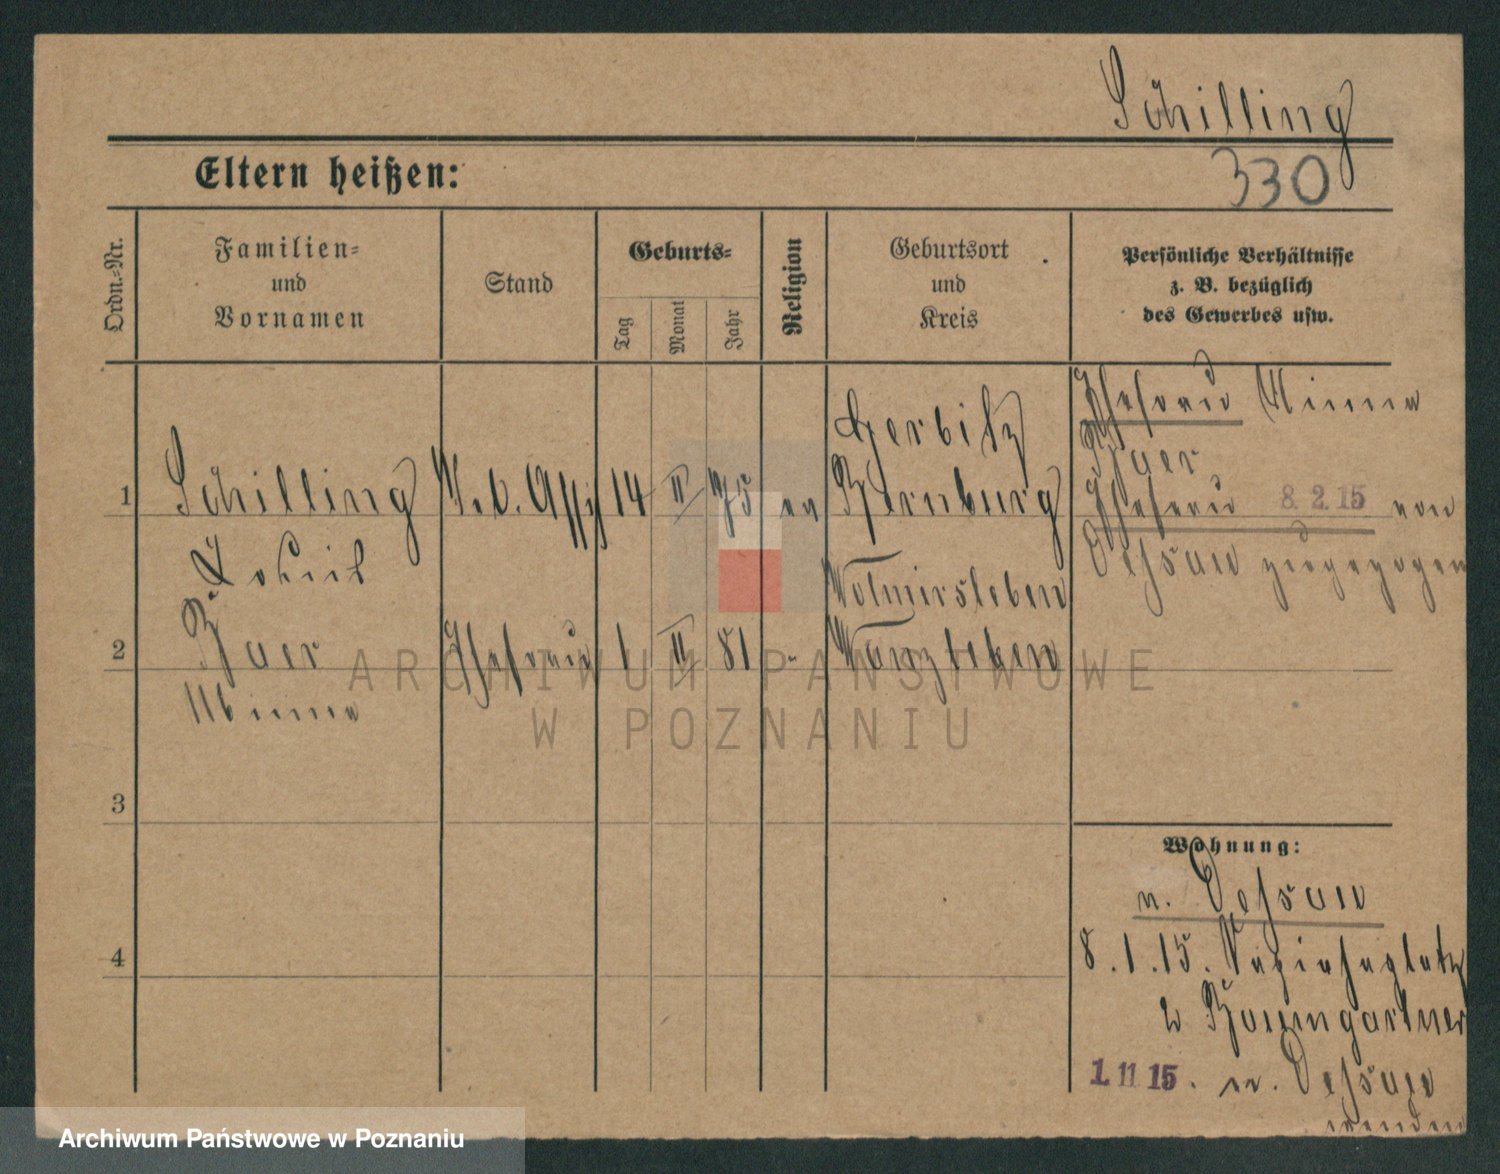 Schilling
Eltern heißen:
330
Ordn.-Nr.
Familien-
und
Vornamen
Stand
Geburts-
Tag
Monat
Jahr
Religion
Geburtsort
und
Kreis
Persönliche Verhältnisse
z. B. bezüglich
des Gewerbes usw.
Ehefrau Minna
Baer
Gerbitz
1 Schilling 14 II 75 ev Bernburg
Ehefrau 8.2.15 von
Dessau zugezogen
Wolmirsleben
2 Baer Ehefrau 1 II 81 " Wanzleben
Minna
3
4
Wohnung:
n. Dessau
8.1.15.
b Baumgartner
1.11.15. n. Dessau
wenden
ARCHIWUM PAŃSTWOWE
W POZNANIU
Archiwum Państwowe w Poznaniu